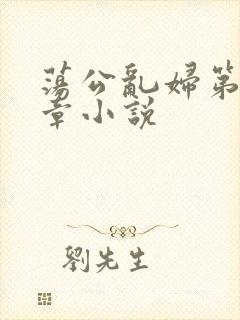 蕩公亂婦第
章小說
劉先生